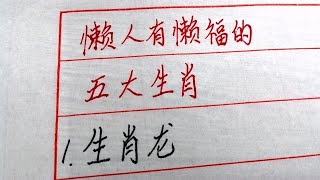 懒人有懒福的
五大生肖
1.生肖龙